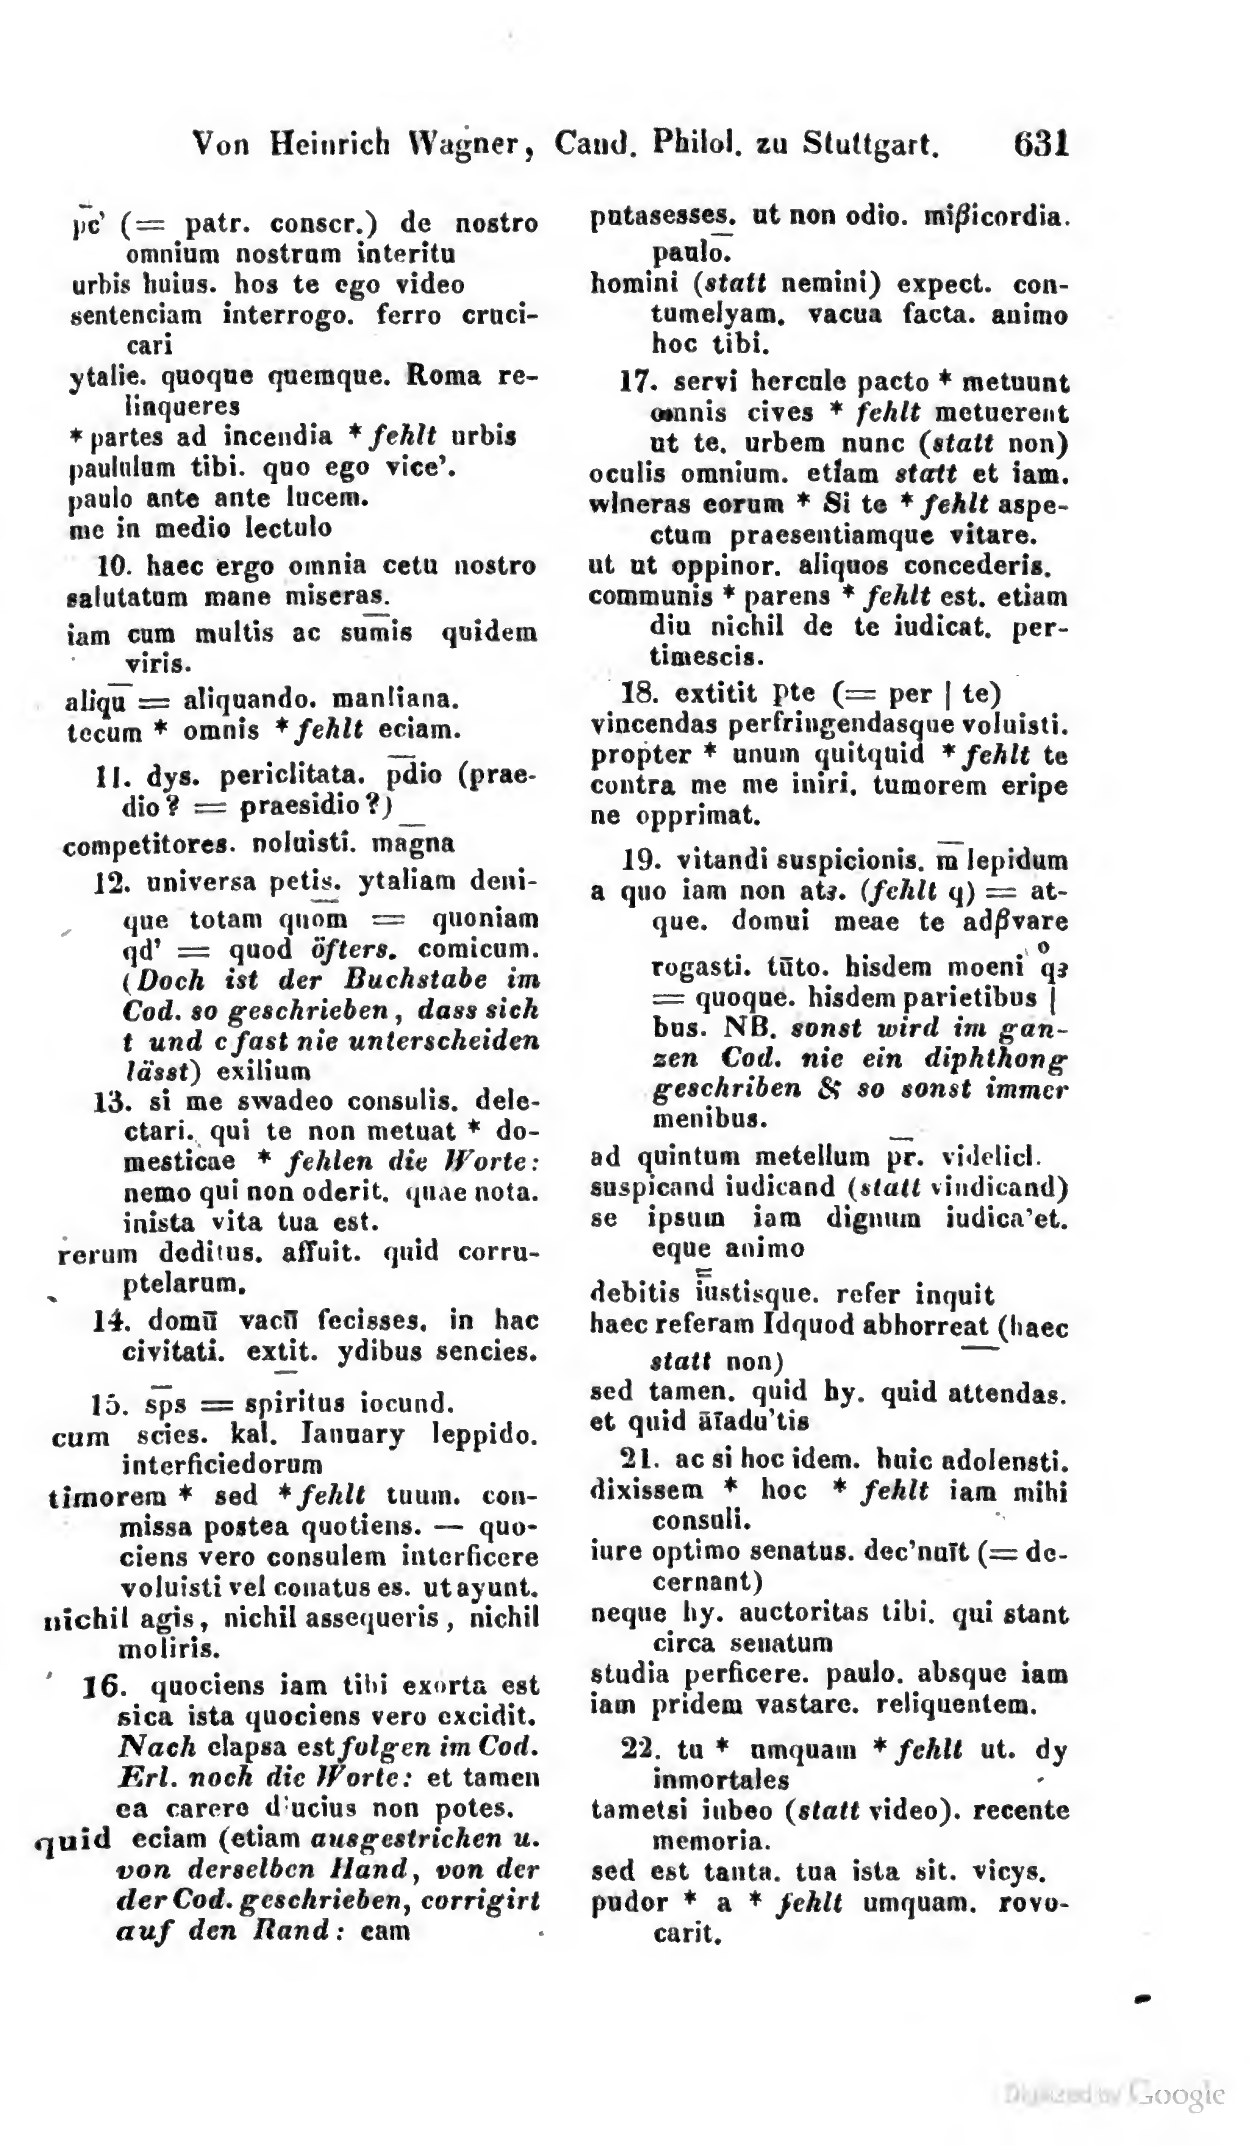 Von Heinrich Wagner, Cand. Philol. zu Stuttgart. 631
p̄c’ (= patr. conscr.) de nostro
omnium nostrum interitu
urbis huius. hos te ego video
sentenciam interrogo. ferro cruci-
cari
ytalie. quoque quemque. Roma re-
linqueres
* partes ad incendia * fehlt urbis
paululum tibi. quo ego vice’.
paulo ante ante lucem.
me in medio lectulo
10. haec ergo omnia cetu nostro
salutatum mane miseras.
iam cum multis ac sum̄is quidem
viris.
aliqū = aliquando. manliana.
tecum * omnis * fehlt eciam.
11. dys. periclitata. pd̄io (prae-
dio? = praesidio?)
competitores. noluisti. magna
12. universa petis. ytaliam deni-
que totam quom̄ = quoniam
qd’ = quod öfters. comicum.
(Doch ist der Buchstabe im
Cod. so geschrieben, dass sich
t und c fast nie unterscheiden
lässt) exilium
13. si me swadeo consulis. dele-
ctari. qui te non metuat * do-
mesticae * fehlen die Worte:
nemo qui non oderit. quae nota.
inista vita tua est.
rerum deditus. affuit. quid corru-
ptelarum.
14. domū vacū fecisses. in hac
civitati. extit. ydibus sencies.
15. sp̄s = spiritus iocund.
cum scies. kal. Ianuary leppido.
interficiedorum
timorem * sed * fehlt tuum. con-
missa postea quotiens. — quo-
ciens vero consulem interficere
voluisti vel conatus es. ut ayunt.
nichil agis, nichil assequeris, nichil
moliris.
16. quociens iam tibi exorta est
sica ista quociens vero excidit.
Nach elapsa est folgen im Cod.
Erl. noch die Worte: et tamen
ea carere d’ucius non potes.
quid eciam (etiam ausgestrichen u.
von derselben Hand, von der
der Cod. geschrieben, corrigirt
auf den Rand: eam
putasesses. ut non odio. miβicordia.
paulō.
homini (statt nemini) expect. con-
tumelyam. vacua facta. animo
hoc tibi.
17. servi hercule pacto * metuunt
omnis cives * fehlt metuerent
ut te. urbem nunc (statt non)
oculis omnium. etiam statt et iam.
wlneras eorum * Si te * fehlt aspe-
ctum praesentiamque vitare.
ut ut oppinor. aliquos concederis.
communis * parens * fehlt est. etiam
diu nichil de te iudicat. per-
timescis.
18. extitit pte (= per | te)
vincendas perfringendasque voluisti.
propter * unum quitquid * fehlt te
contra me me iniri. tumorem eripe
ne opprimat.
19. vitandi suspicionis. m̄ lepidum
a quo iam non atꝫ. (fehlt q) = at-
que. domui meae te adβvare
rogasti. tūto. hisdem moeni qꝫ
= quoque. hisdem parietibus |
bus. NB. sonst wird im gan-
zen Cod. nie ein diphthong
geschriben & so sonst immer
menibus.
ad quintum metellum pr̄. videlicl.
suspicand iudicand (statt vindicand)
se ipsum iam dignum iudica’et.
eque animo
debitis iustisque. refer inquit
haec referam Idquod abhorreat (haec
statt non)
sed tamen. quid hy. quid attendas.
et quid āīadu’tis
21. ac si hoc idem. huic adolensti.
dixissem * hoc * fehlt iam mihi
consuli.
iure optimo senatus. dec’nuīt (= de-
cernant)
neque hy. auctoritas tibi. qui stant
circa senatum
studia perficere. paulo. absque iam
iam pridem vastare. reliquentem.
22. tu * umquam * fehlt ut. dy
inmortales
tametsi iubeo (statt video). recente
memoria.
sed est tanta. tua ista sit. vicys.
pudor * a * fehlt umquam. rovo-
carit.
Digitized by Google